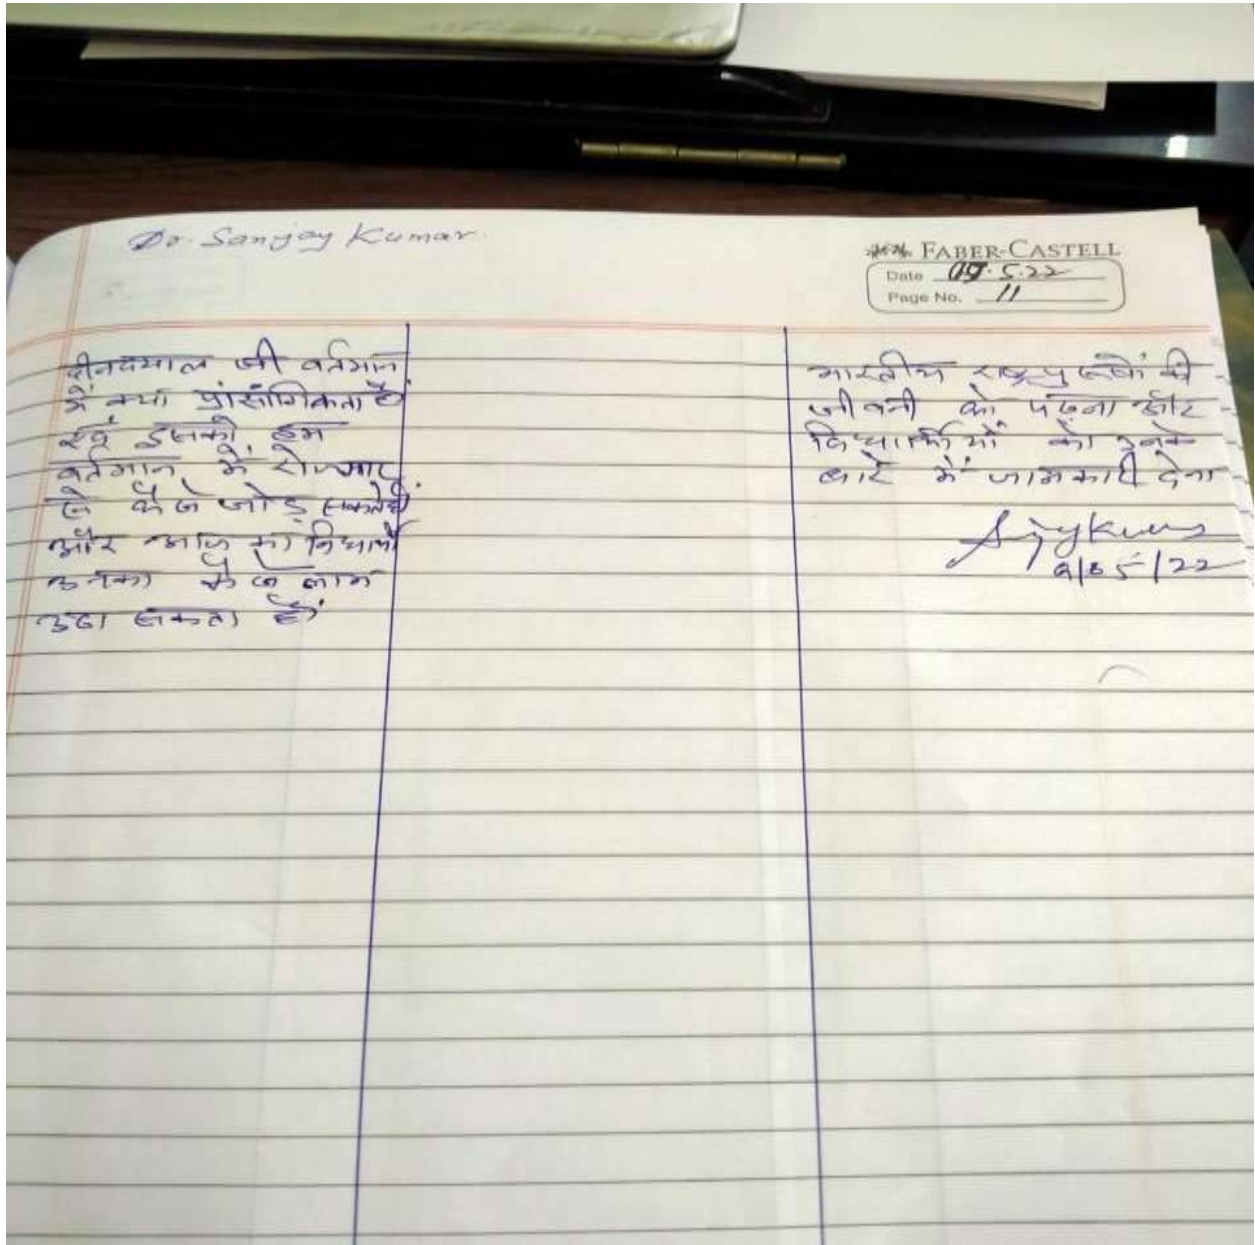 Dr. Sanjay Kumar.
FABER-CASTELL
Date 09.5.22
Page No. 11
दीनदयाल जी वर्तमान
में क्या प्रांसांगिकता है
एवं इसको हम
वर्तमान में रोजगार
से कैसे जोड़ सकते हैं
और आज का विधार्थी
उनका कैसे लाभ
उठा सकता है।
भारतीय राष्ट्रपुरूषों की
जीवनी को पढ़ना और
विधार्थियों को उनके
बारे में जानकारी देना
9/05/22